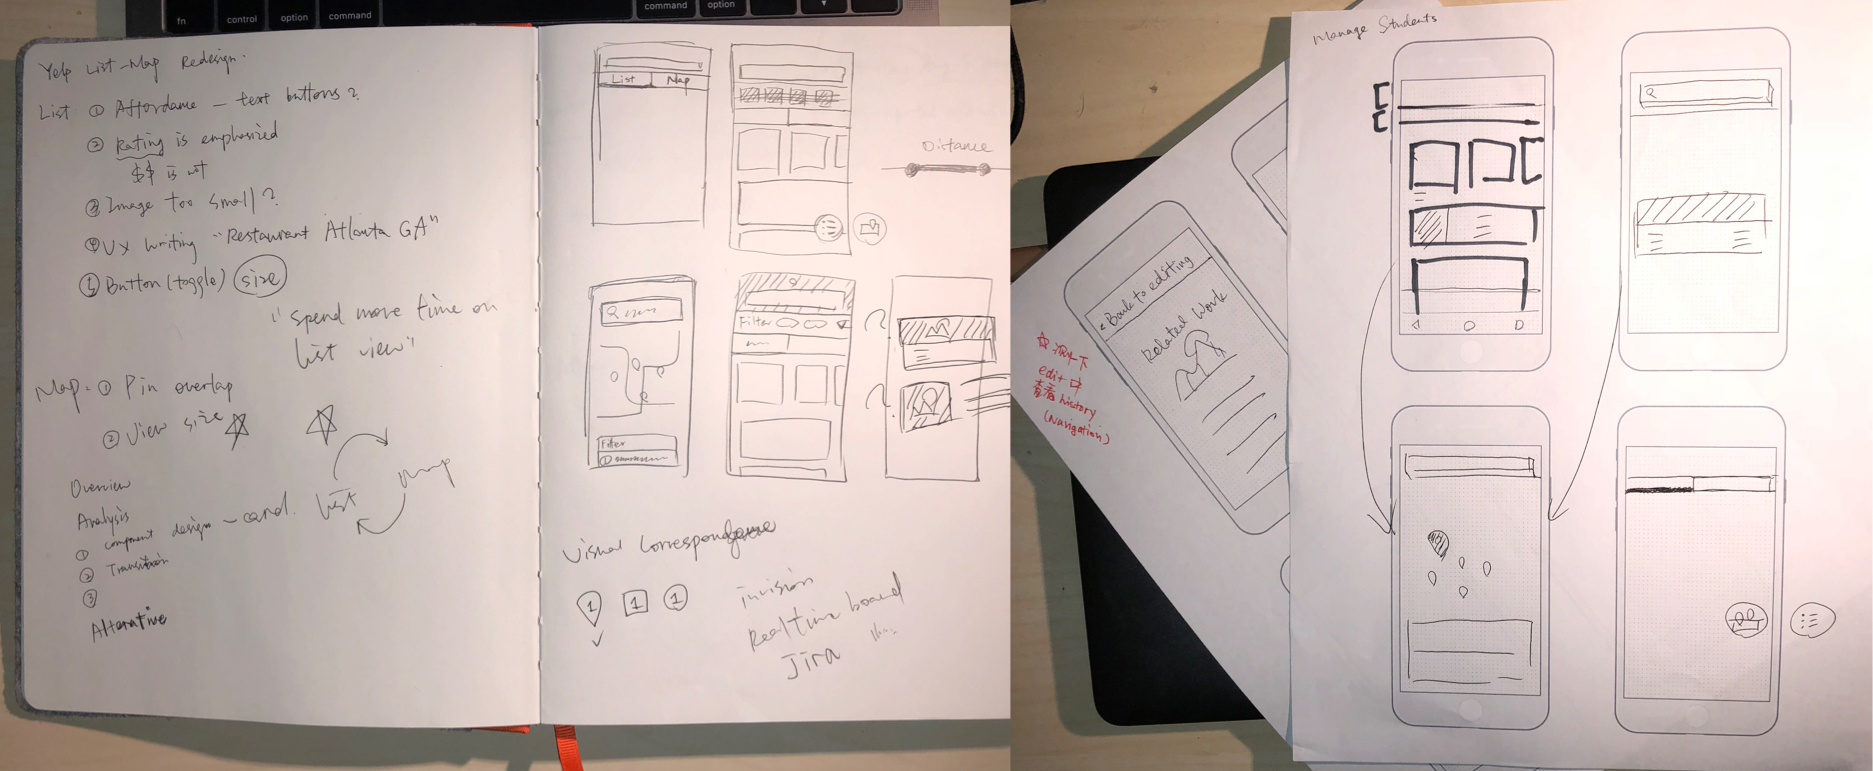 fn
control
option
command
command
option
Yelp List-Map Redesign.
List ① Affordance — text buttons?
② Rating is emphasized
$$ is not
③ Image too small?
④ UX Writing "Restaurant Atlanta GA"
⑤ Button (toggle) size
"spend more time on
list view"
Map: ① Pin overlap
② View size
Overview
Analysis
① component design — card.
② Transition
③
Alterative
list
map
List Map
Distance
Filter
Filter
①
Visual Correspondence
1 1 1
invision
Realtime board
Jira
Manage Students
< Back to editing
Related Work
edit 中
查看 history
(navigation)